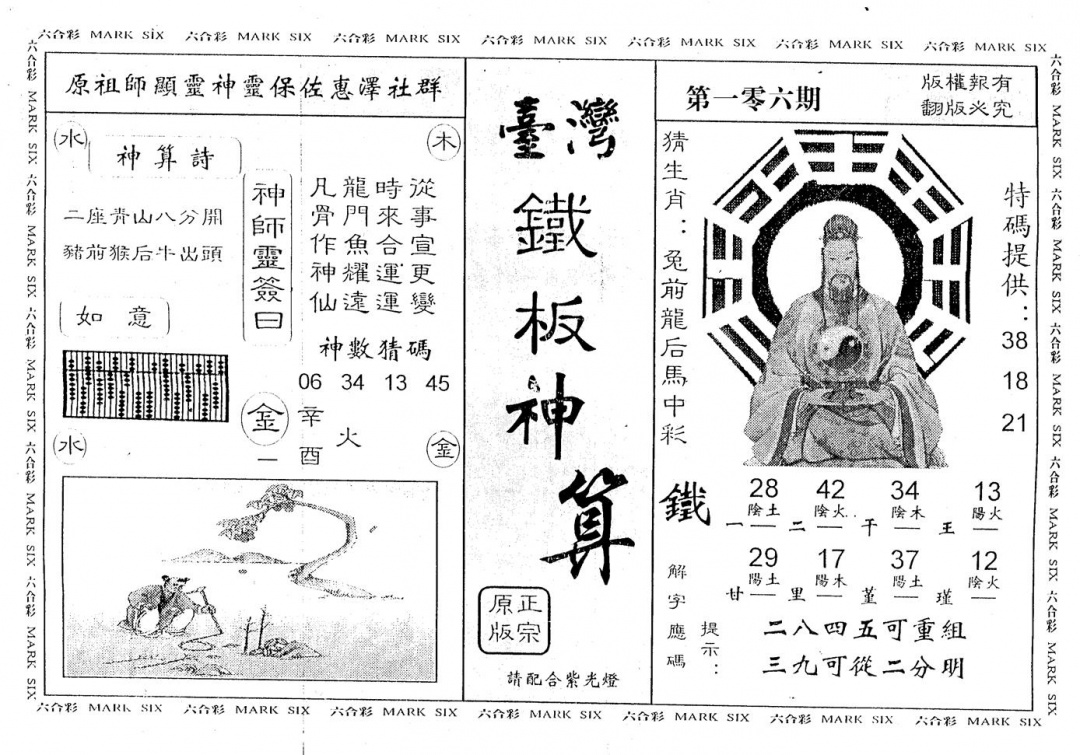 六合彩 MARK SIX 六合彩 MARK SIX 六合彩 MARK SIX 六合彩 MARK SIX 六合彩 MARK SIX 六合彩 MARK SIX 六合彩 MARK SIX
六合彩 MARK SIX 六合彩 MARK SIX 六合彩 MARK SIX 六合彩 MARK SIX 六合彩 MARK SIX
原祖師顯靈神靈保佐惠澤社群
水
木
神算詩
二座青山八分開
豬前猴后牛出頭
如意
神師靈簽曰
從事宣更變
時來合運運
龍門魚耀遠
凡骨作神仙
神數猜碼
06 34 13 45
金一
辛酉
火
水
金
臺灣
鐵板神算
正宗
原版
請配合紫光燈
第一零六期
版權報有
翻版必究
猜生肖：兔前龍后馬中彩
特碼提供：
38
18
21
鐵
28 42 34 13
陰土 陰火 陰木 陽火
一 二 干 王
29 17 37 12
陽土 陽木 陽土 陰火
甘 里 堇 瑾
解字應碼
提示：
二八四五可重組
三九可從二分明
六合彩 MARK SIX 六合彩 MARK SIX 六合彩 MARK SIX 六合彩 MARK SIX 六合彩 MARK SIX
六合彩 MARK SIX 六合彩 MARK SIX 六合彩 MARK SIX 六合彩 MARK SIX 六合彩 MARK SIX 六合彩 MARK SIX 六合彩 MARK SIX